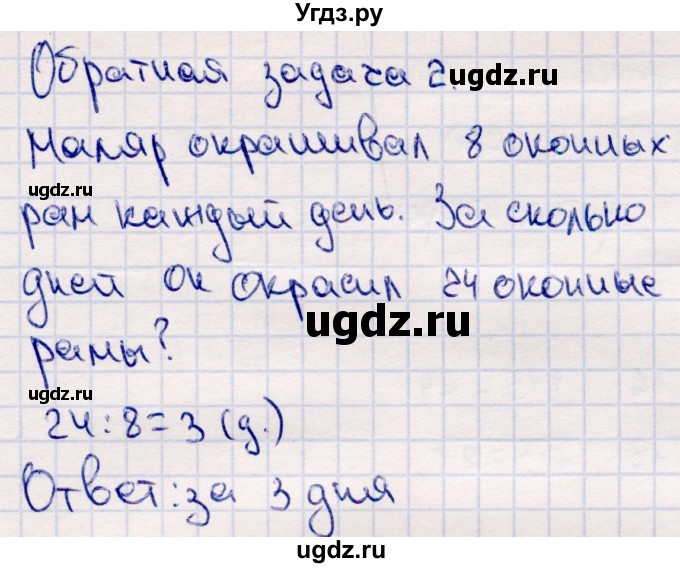 Угдз.ру
Обратная задача 2.
ugdz.ru
Маляр окрашивал 8 оконных
ugdz.ru
рам каждый день. За сколько
дней он окрасил 24 оконные
ugdz.ru
рамы?
ugdz.ru
24:8=3 (д.)
Ответ: за 3 дня
ugdz.ru
ugdz.ru